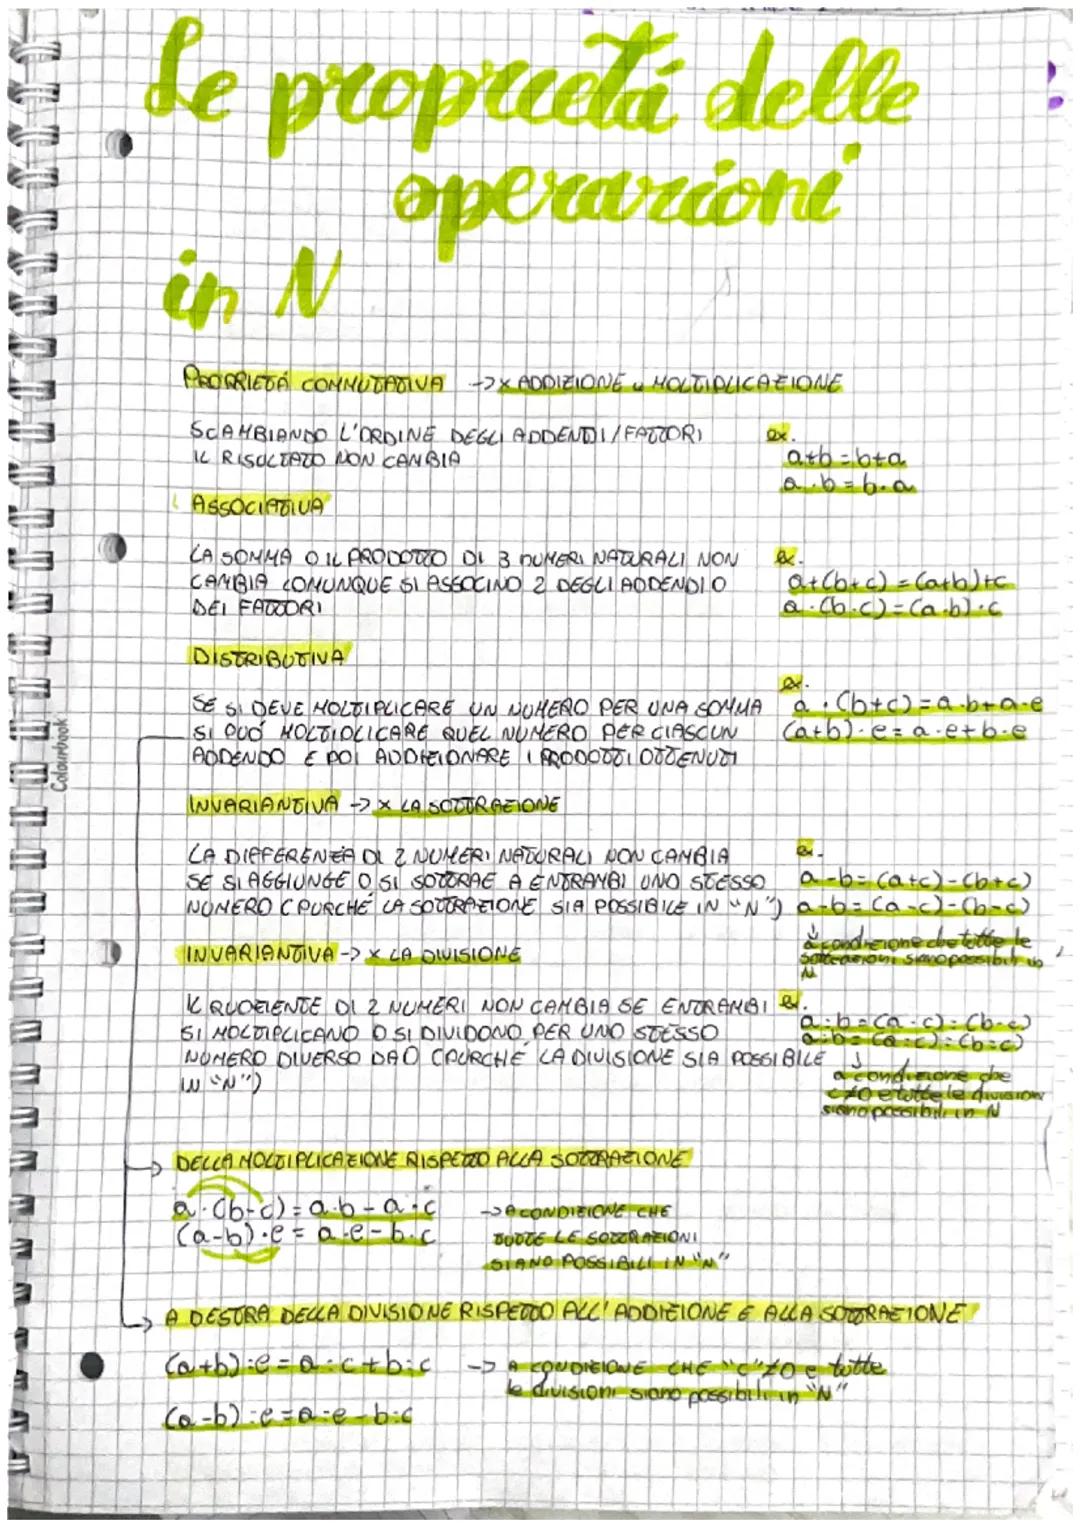 Le proprietá delle
operazioni
in N
PROPRIETÁ COMMUTATIVA -> x ADDIZIONE e MOLTIPLICAZIONE
SCAMBIANDO L'ORDINE DEGLI ADDENDI/FATTORI
IL RISULTATO NON CAMBIA
ex.
a+b=b+a
a·b=b·a
ASSOCIATIVA
LA SOMMA O IL PRODOTTO DI 3 NUMERI NATURALI NON
CAMBIA COMUNQUE SI ASSOCINO 2 DEGLI ADDENDI O
DEI FATTORI
ex.
a+(b+c)=(a+b)+c
a·(b·c)=(a·b)·c
DISTRIBUTIVA
SE SI DEVE MOLTIPLICARE UN NUMERO PER UNA SOMMA
SI PUÓ MOLTIPLICARE QUEL NUMERO PER CIASCUN
ADDENDO E POI ADDIZIONARE I PRODOTTI OTTENUTI
ex.
a·(b+c)=a·b+a·c
(a+b)·c=a·c+b·c
INVARIANTIVA -> x LA SOTTRAZIONE
LA DIFFERENZA DI 2 NUMERI NATURALI NON CAMBIA
SE SI AGGIUNGE O SI SOTTRAE A ENTRAMBI UNO STESSO
NUMERO (PURCHÉ LA SOTTRAZIONE SIA POSSIBILE IN "N")
ex.
a-b=(a+c)-(b+c)
a-b=(a-c)-(b-c)
↓
a condizione che tutte le
sottrazioni siano possibili in
N
INVARIANTIVA -> x LA DIVISIONE
IL QUOZIENTE DI 2 NUMERI NON CAMBIA SE ENTRAMBI
SI MOLTIPLICANO O SI DIVIDONO PER UNO STESSO
NUMERO DIVERSO DA 0 (PURCHÉ LA DIVISIONE SIA POSSIBILE
IN "N")
ex.
a:b=(a·c):(b·c)
a:b=(a:c):(b:c)
↓
a condizione che
c≠0 e tutte le divisioni
siano possibili in N
-> DELLA MOLTIPLICAZIONE RISPETTO ALLA SOTTRAZIONE
a·(b-c)=a·b-a·c
(a-b)·c=a·c-b·c
-> A CONDIZIONE CHE
TUTTE LE SOTTRAZIONI
SIANO POSSIBILI IN "N"
-> A DESTRA DELLA DIVISIONE RISPETTO ALL'ADDIZIONE E ALLA SOTTRAZIONE
(a+b):c=a:c+b:c -> A CONDIZIONE CHE "C"≠0 e tutte
le divisioni siano possibili in "N"
(a-b):c=a:c-b:c
Colourbook